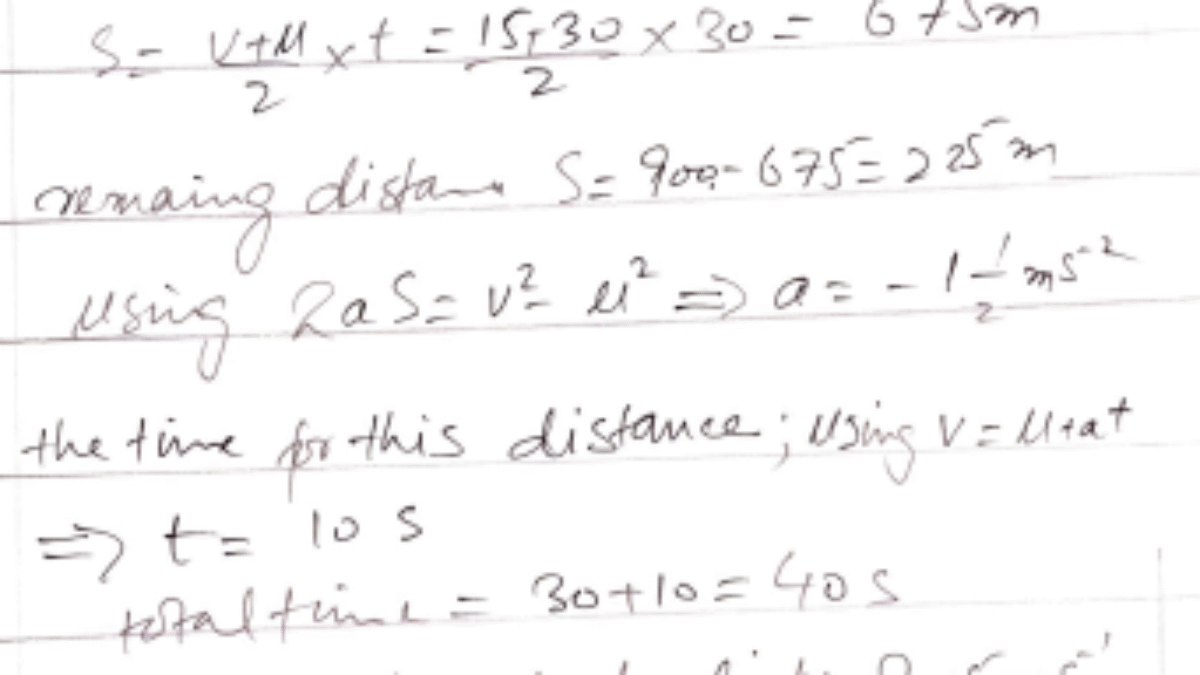 S = V+u/2 × t = 15+30/2 × 30 = 675m
remaing distan S = 900 - 675 = 225 m
using 2aS = v² - u² ⇒ a = - 1 1/2 ms⁻²
the time for this distance; using v = u+at
⇒ t = 10 s
total time = 30+10 = 40 s